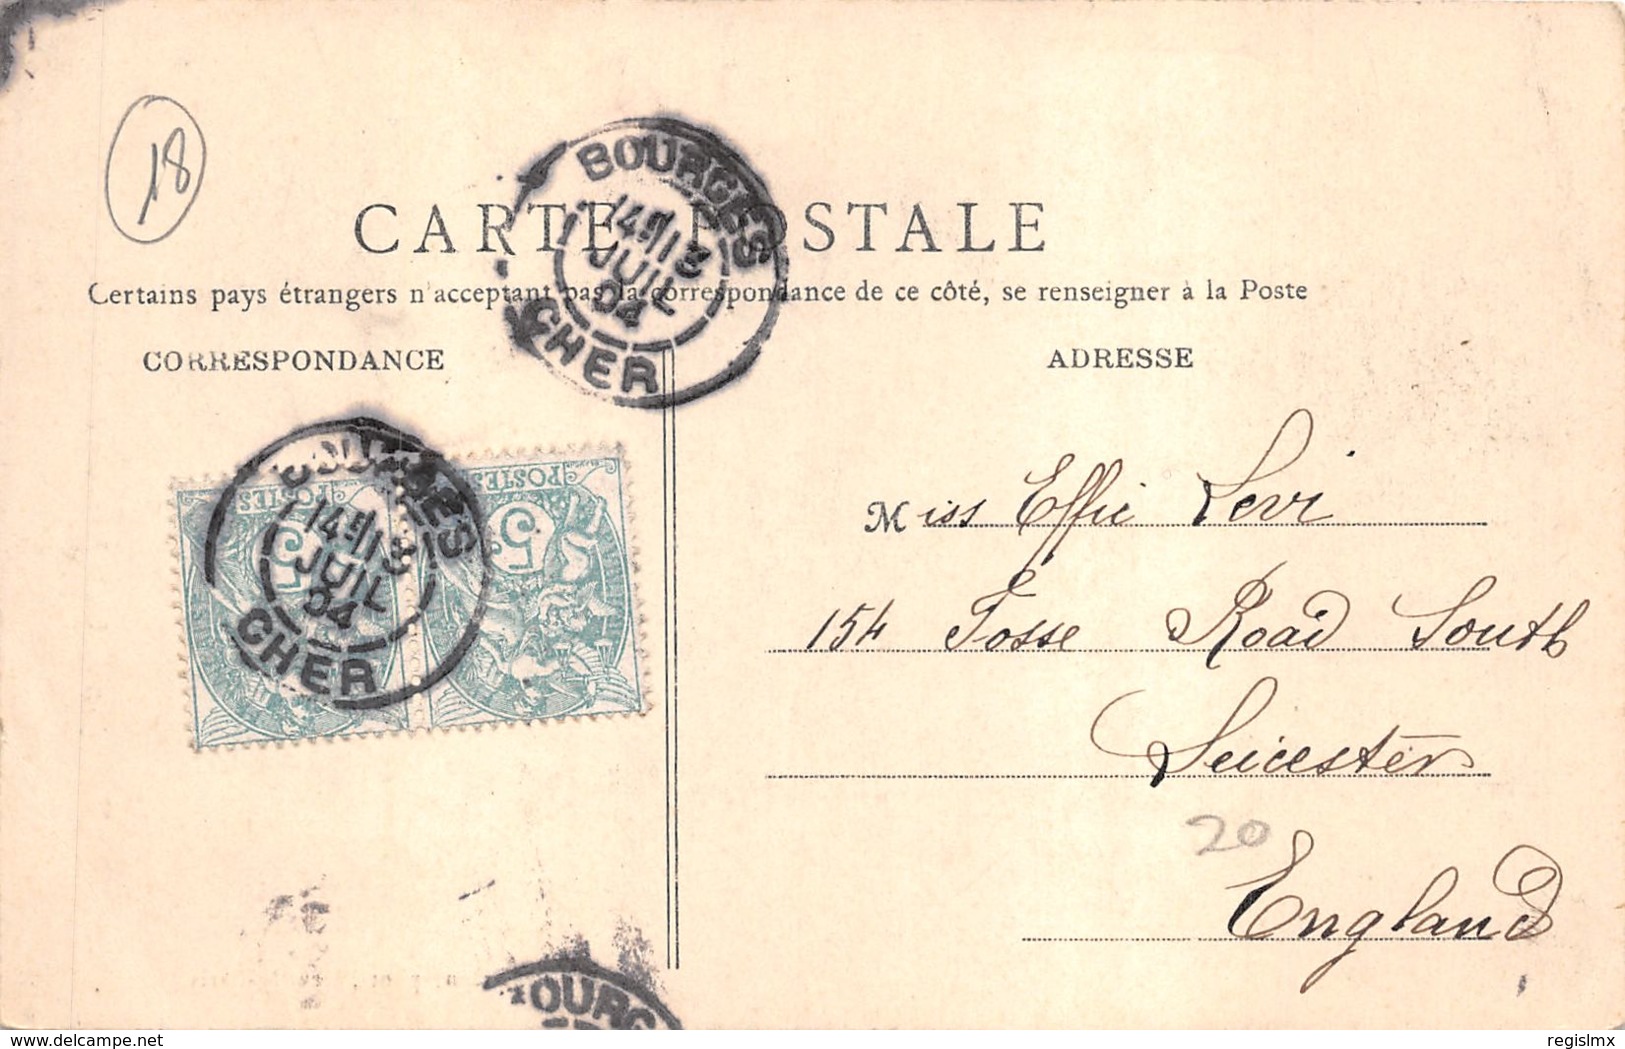 18
BOURGES
14 E/13
JUIL
04
CHER
CARTE POSTALE
Certains pays étrangers n'acceptant pas la correspondance de ce côté, se renseigner à la Poste
CORRESPONDANCE
ADRESSE
POSTES
5c
POSTES
5c
BOURGES
14 E/13
JUIL
04
CHER
Miss Effie Levi
154 Fosse Road South
Leicester
20
England
OURG
delcampe.net
regislmx